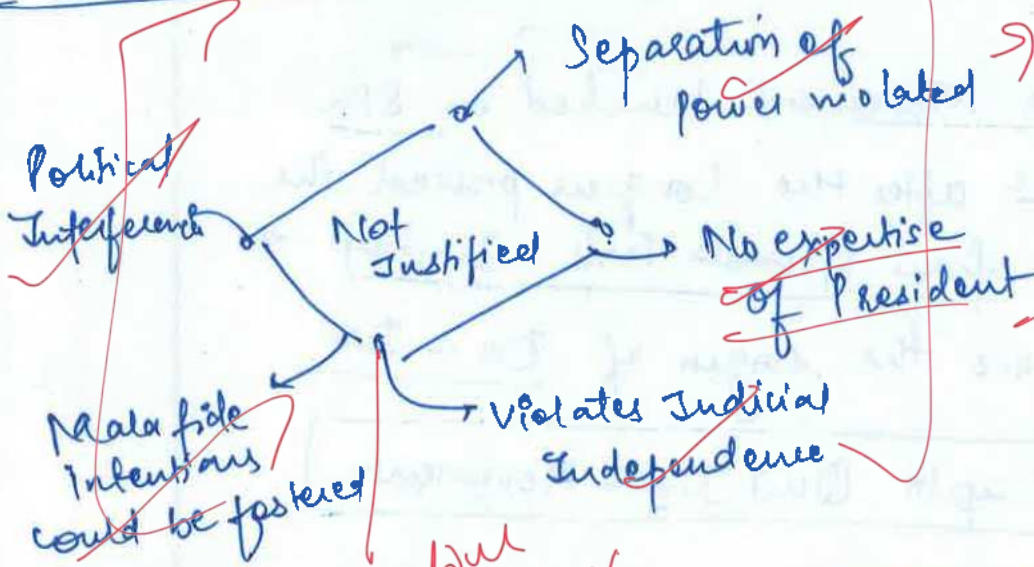 Separation of
power violated
Political
Interference
Not
Justified
No expertise
of President
Violates Judicial
Independence
Mala fide
intentions
could be fostered